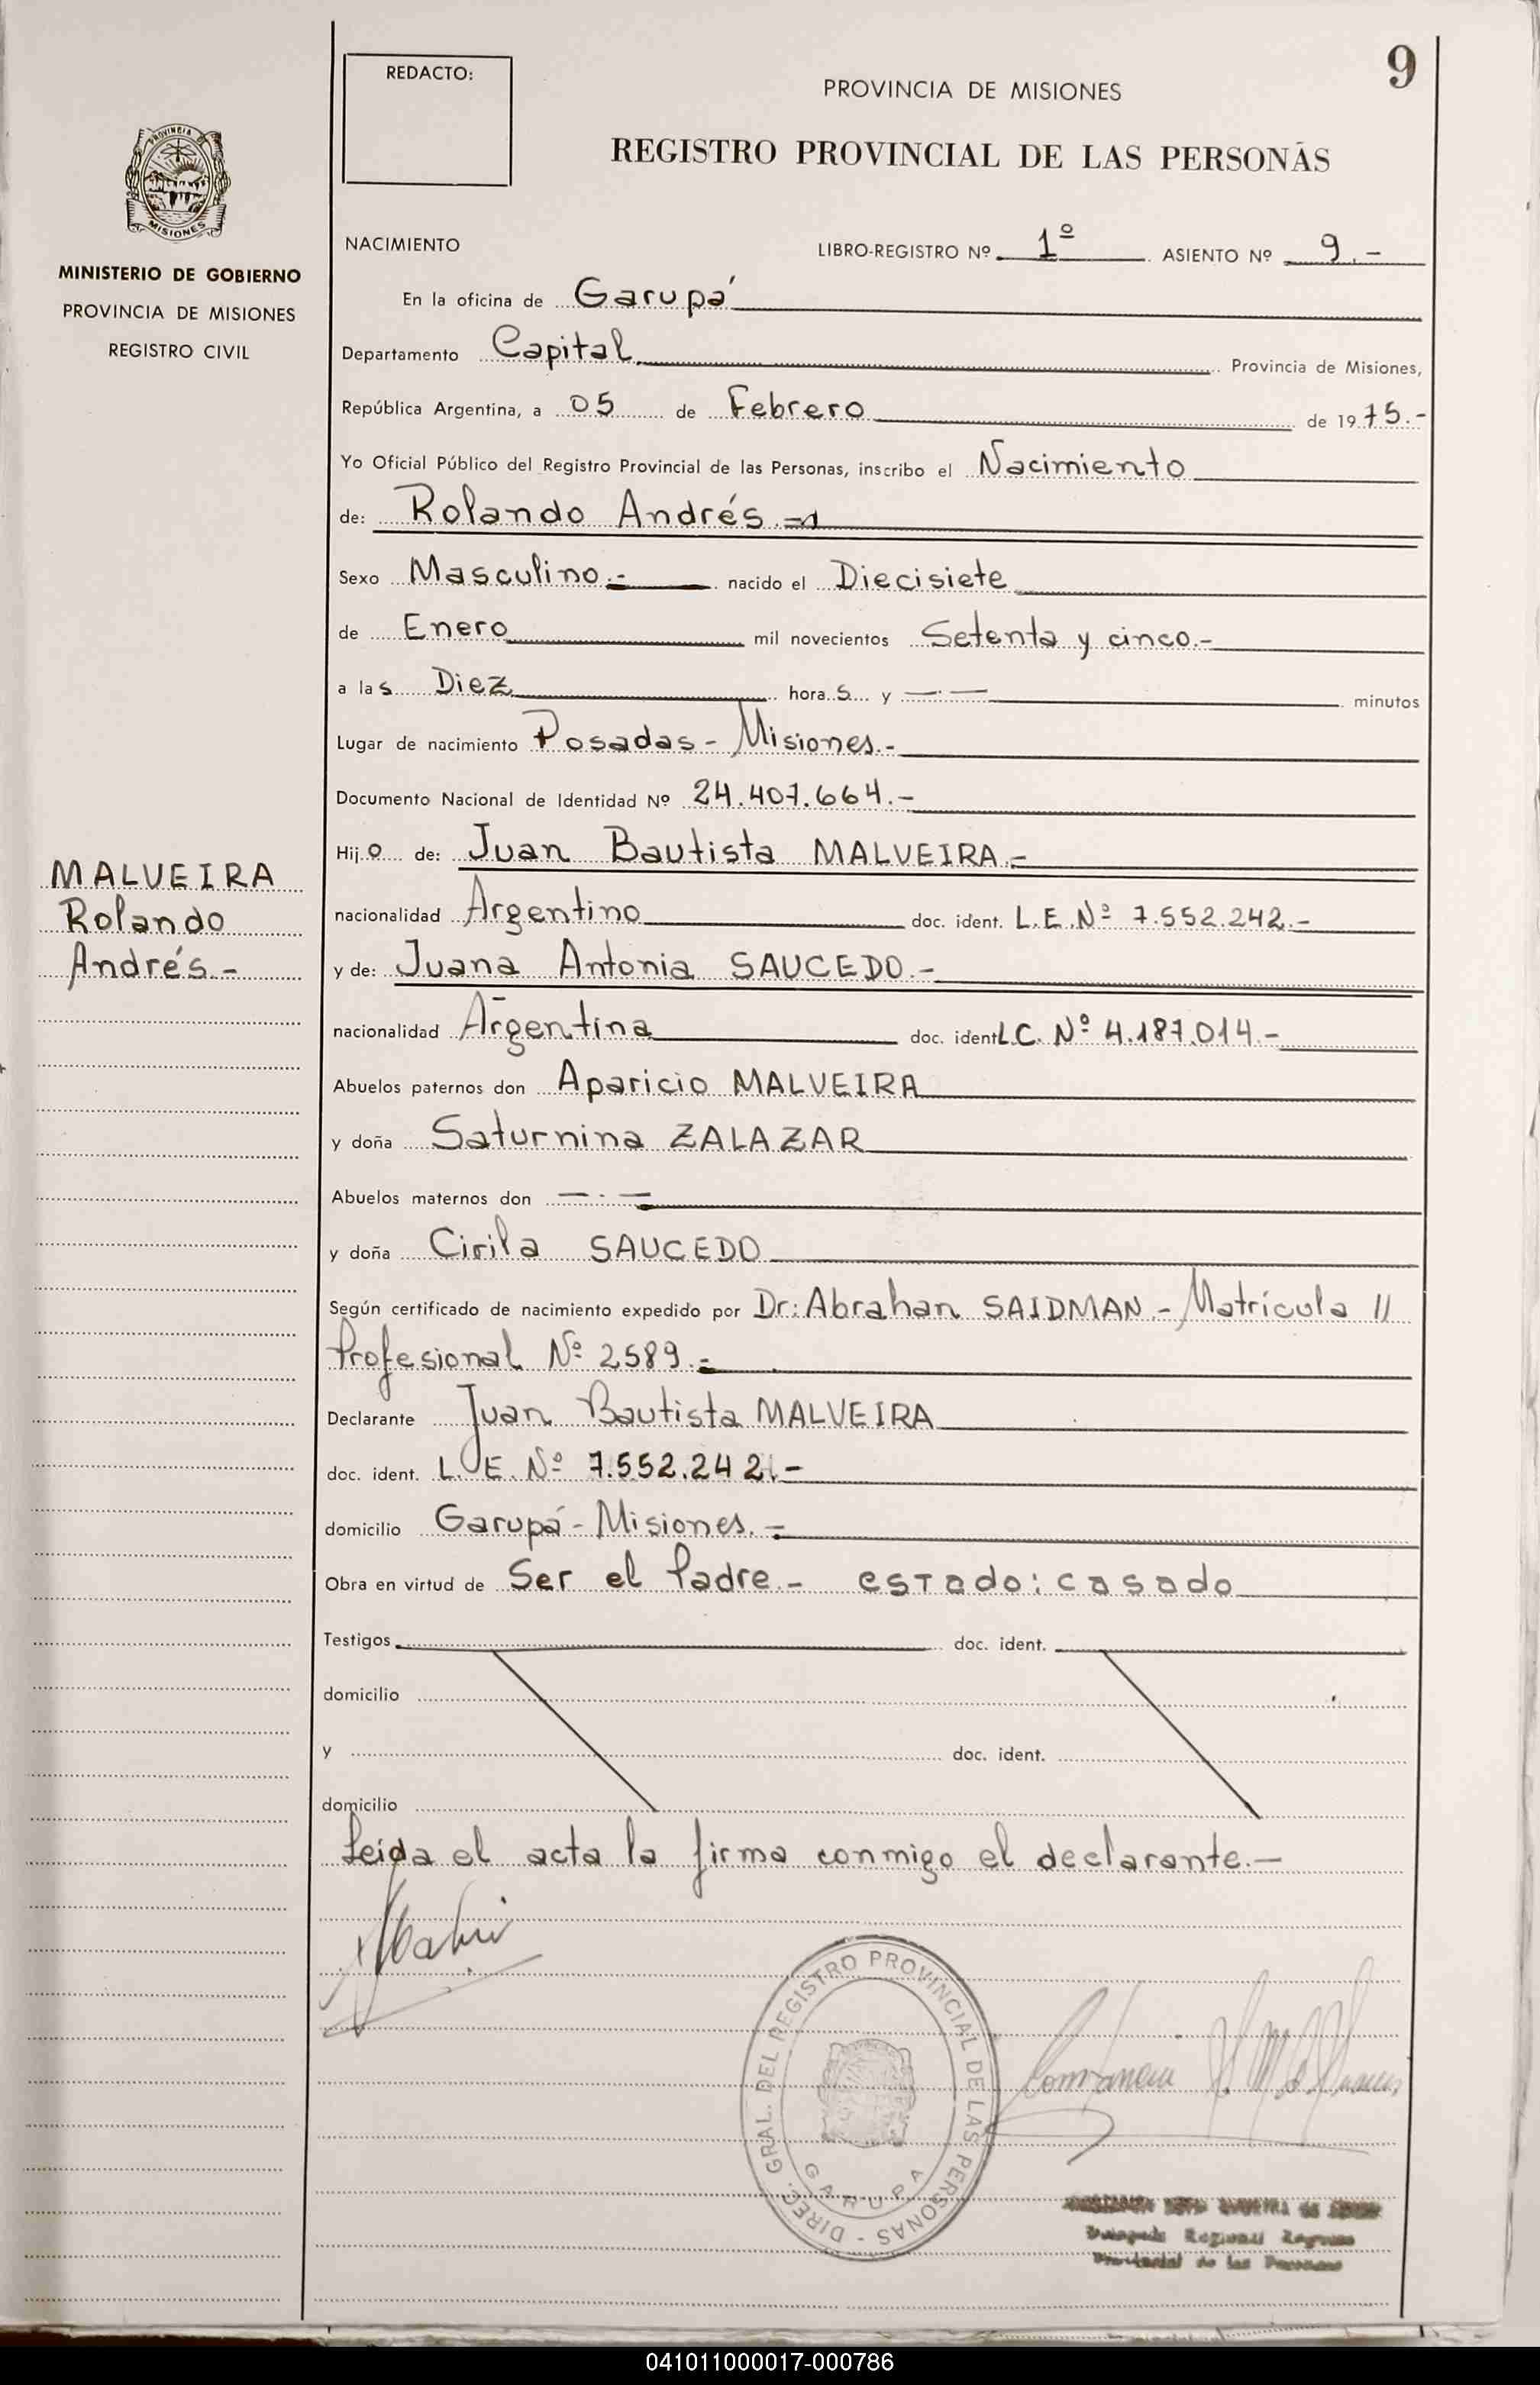 9
REDACTO:
PROVINCIA DE MISIONES
REGISTRO PROVINCIAL DE LAS PERSONAS
PROVINCIA DE
MISIONES
MINISTERIO DE GOBIERNO
PROVINCIA DE MISIONES
REGISTRO CIVIL
NACIMIENTO LIBRO-REGISTRO Nº 1º ASIENTO Nº 9.-
En la oficina de Garupá
Departamento Capital Provincia de Misiones,
República Argentina, a 05 de Febrero de 1975.-
Yo Oficial Público del Registro Provincial de las Personas, inscribo el Nacimiento
de: Rolando Andrés.=
Sexo Masculino.- nacido el Diecisiete
de Enero mil novecientos Setenta y cinco.-
a las Diez horas y —.— minutos
Lugar de nacimiento Posadas - Misiones.-
Documento Nacional de Identidad Nº 24.407.664.-
Hijo de: Juan Bautista MALVEIRA.-
MALVEIRA
Rolando
Andrés.-
nacionalidad Argentino doc. ident. L.E.Nº 7.552.242.-
y de: Juana Antonia SAUCEDO.-
nacionalidad Argentina doc. ident L.C. Nº 4.187.014.-
Abuelos paternos don Aparicio MALVEIRA
y doña Saturnina ZALAZAR
Abuelos maternos don —.—
y doña Cirila SAUCEDO
Según certificado de nacimiento expedido por Dr: Abrahan SAIDMAN.- Matrícula //
Profesional Nº 2589.=
Declarante Juan Bautista MALVEIRA
doc. ident. L.E. Nº 7.552.242.-
domicilio Garupá - Misiones.=
Obra en virtud de Ser el Padre.- estado: casado
Testigos doc. ident.
domicilio
y doc. ident.
domicilio
Leida el acta la firma conmigo el declarante.-
DIREC. GRAL. DEL REGISTRO PROVINCIAL DE LAS PERSONAS -
GARUPA
Provincial de las Personas
041011000017-000786